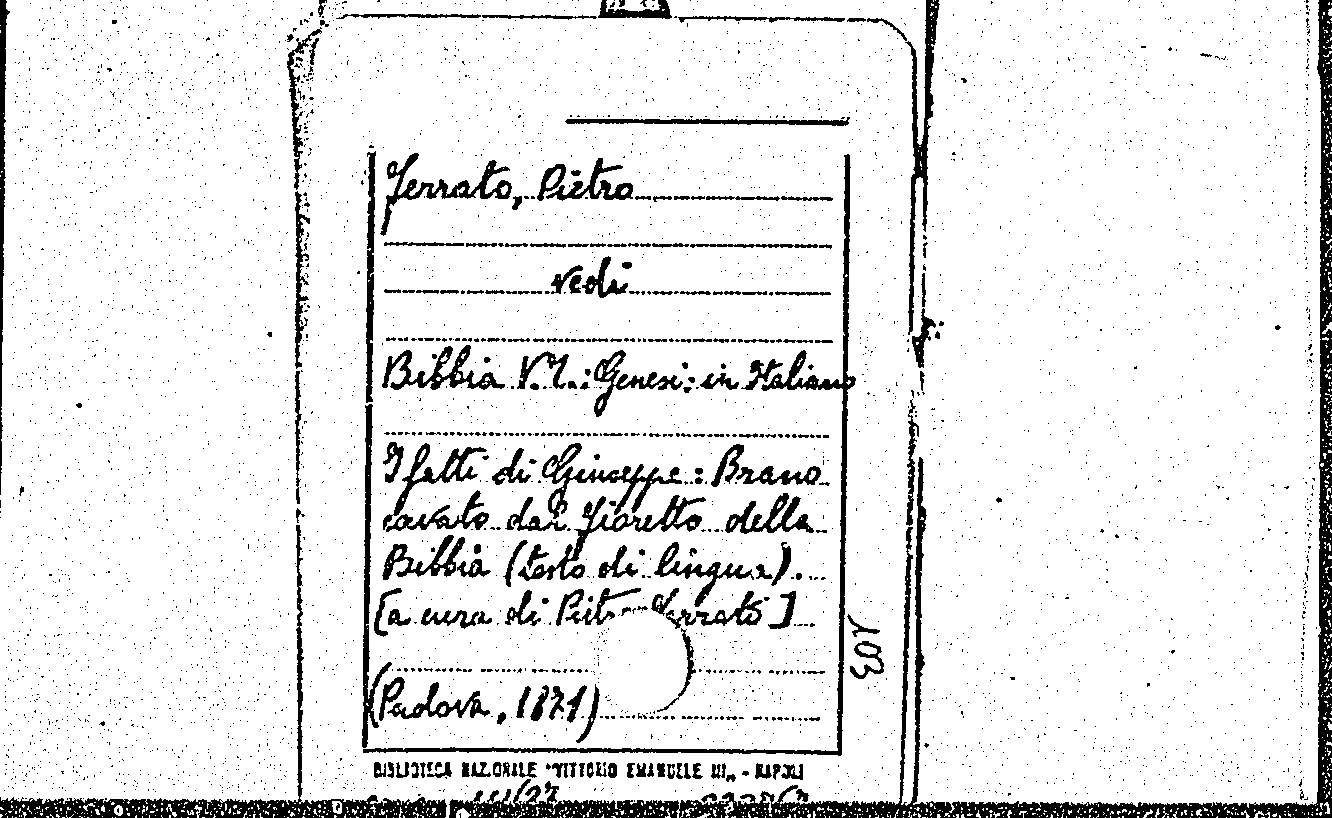 Ferrato, Pietro
vedi
Bibbia V.T.: Genesi: in Italiano
I fatti di Giuseppe: Brano
cavato dal fioretto della
Bibbia (testo di lingua).
[a cura di Pietro Ferrato]
(Padova, 1871)
BIBLIOTECA NAZIONALE "VITTORIO EMANUELE III„ - NAPOLI